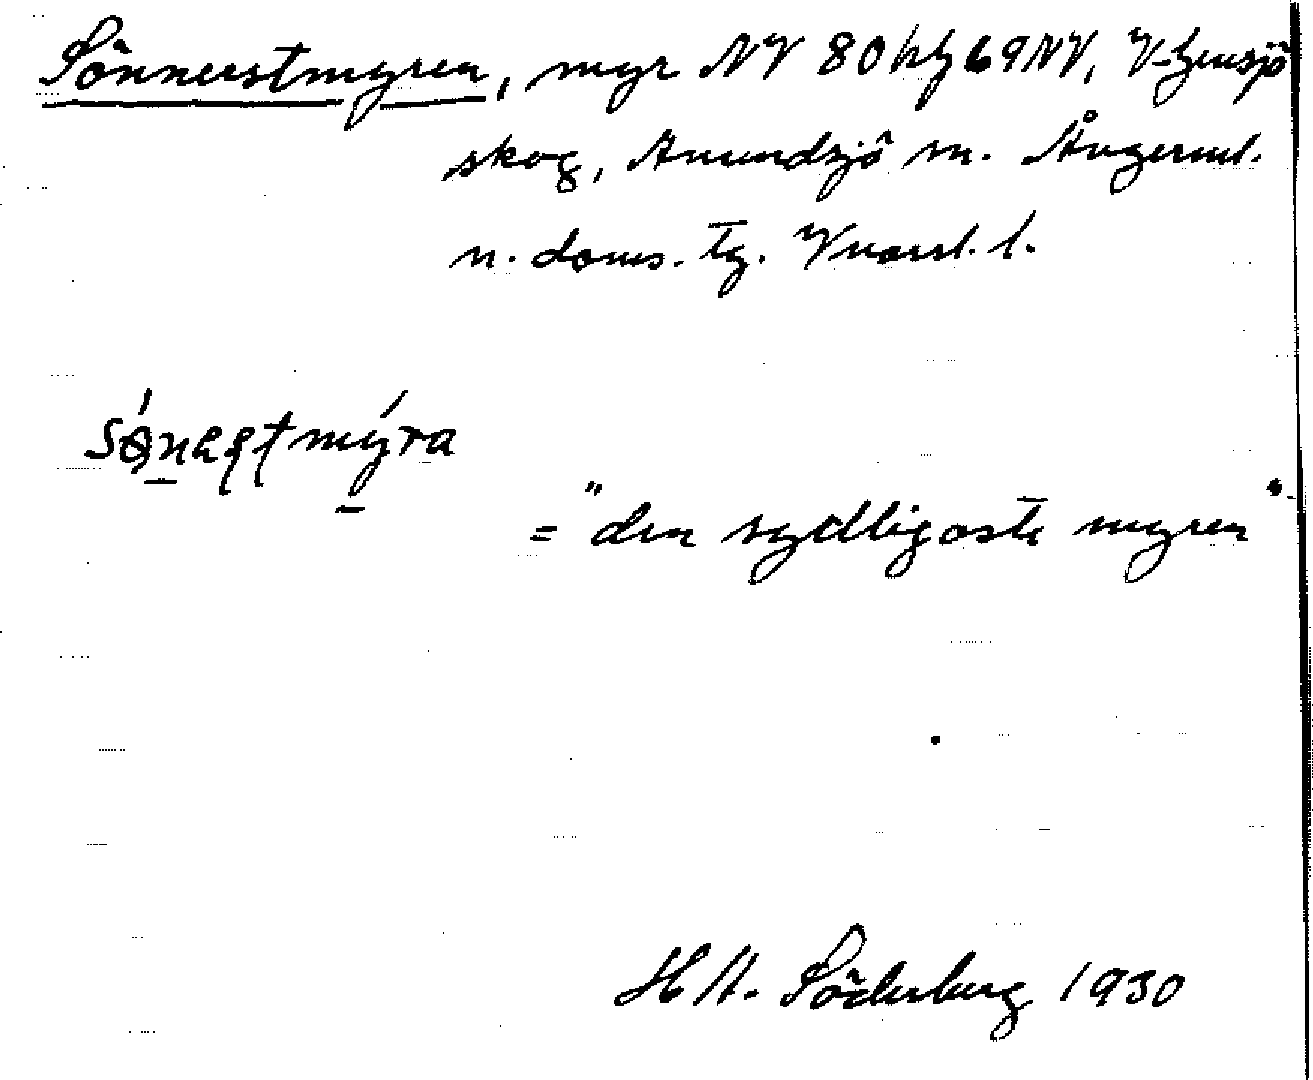 Sönnerstmyren, myr NV 80 kbl 69 NV, V. Gensjö
skog, Anundsjö sn. Ångerml.
n. doms. tg. Vnorrl. l.
mýra
= "den sydligaste myren"
H A. Söderberg 1930